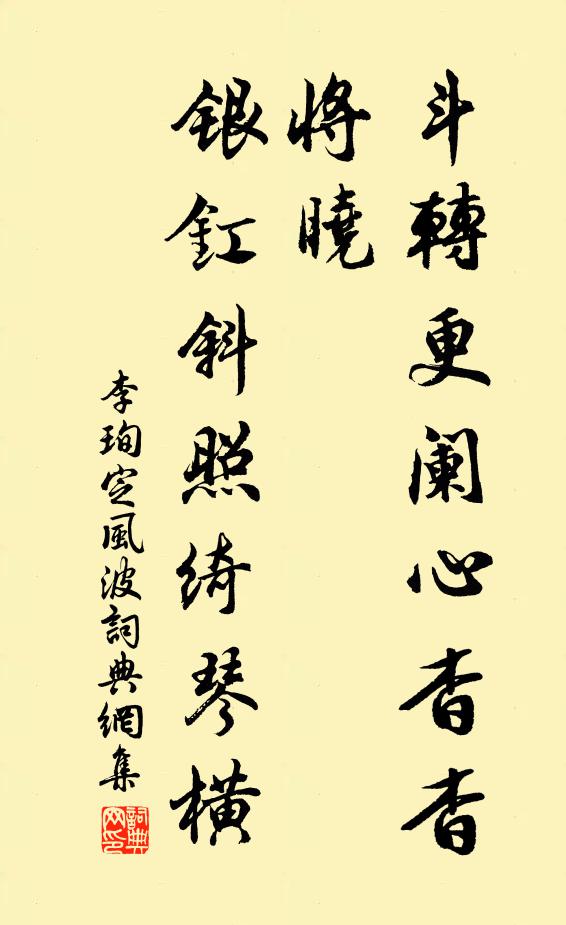 斗轉更闌心杳杳
將曉
銀釭斜照綺琴橫
李珣定風波詞典網集
詞典網印